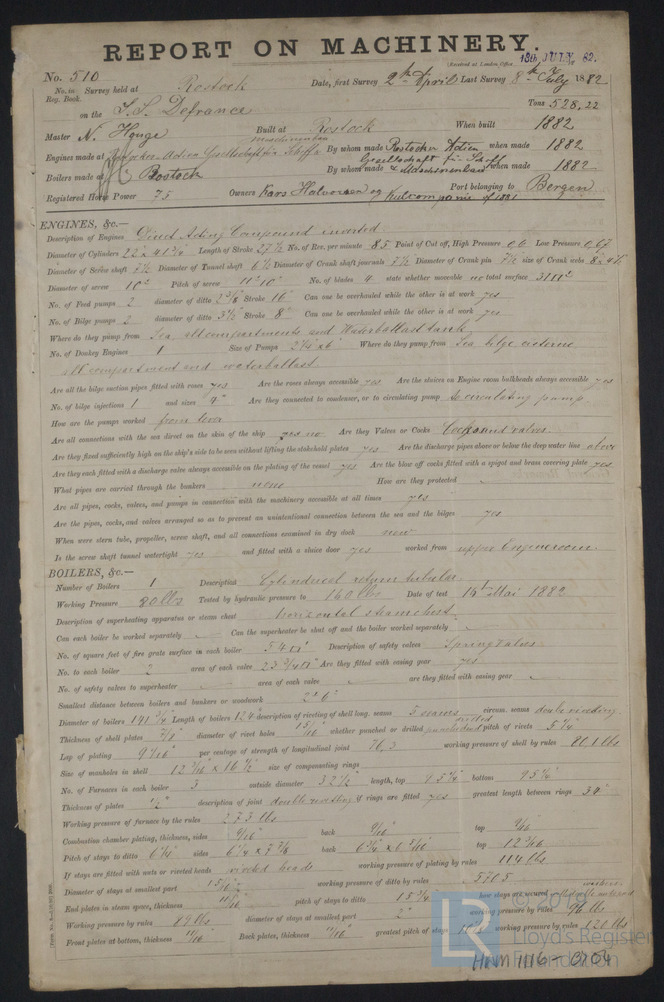 REPORT ON MACHINERY.
Received at London Office 18th JULY, 82.
No. 510
No. in Reg. Book. Survey held at Rostock Date, first Survey 2th April Last Survey 8th July 1882
on the S.S. Defrance Tons 528,22
Master N. Hauge Built at Rostock When built 1882
Engines made at By whom made Rostocker Actien Gesellschaft für Schiff & Maschinenbau when made 1882
Boilers made at Rostock By whom made when made 1882
Registered Horse Power 75 Owners Port belonging to Bergen
ENGINES, &c.—
Description of Engines Direct Acting Compound inverted
Diameter of Cylinders 22 x 41 3/4 Length of Stroke 27 1/2 No. of Rev. per minute 85 Point of Cut off, High Pressure 0,6 Low Pressure 0,67
Diameter of Screw shaft 7 1/2 Diameter of Tunnel shaft 6 1/2 Diameter of Crank shaft journals 7 1/2 Diameter of Crank pin 7 1/2 size of Crank webs
Diameter of screw 10 2 Pitch of screw 11' 10" No. of blades 4 state whether moveable no total surface
No. of Feed pumps 2 diameter of ditto 2 3/8 Stroke 16" Can one be overhauled while the other is at work yes
No. of Bilge pumps 2 diameter of ditto 3 1/2 Stroke 8" Can one be overhauled while the other is at work yes
Where do they pump from Sea all compartments and Waterballast tank
No. of Donkey Engines 1 Size of Pumps Where do they pump from Sea bilge cisterns
all compartment and waterballast.
Are all the bilge suction pipes fitted with roses yes Are the roses always accessible yes Are the sluices on Engine room bulkheads always accessible yes
No. of bilge injections 1 and sizes 4" Are they connected to condenser, or to circulating pump to circulating pump.
How are the pumps worked from lever
Are all connections with the sea direct on the skin of the ship no Are they Valves or Cocks Cocks and valves.
Are they fixed sufficiently high on the ship's side to be seen without lifting the stokehold plates yes Are the discharge pipes above or below the deep water line above
Are they each fitted with a discharge valve always accessible on the plating of the vessel yes Are the blow off cocks fitted with a spigot and brass covering plate yes
What pipes are carried through the bunkers none How are they protected
Are all pipes, cocks, valves, and pumps in connection with the machinery accessible at all times yes
Are the pipes, cocks, and valves arranged so as to prevent an unintentional connection between the sea and the bilges yes
When were stern tube, propeller, screw shaft, and all connections examined in dry dock new
Is the screw shaft tunnel watertight yes and fitted with a sluice door yes worked from upper Engineroom.
BOILERS, &c.—
Number of Boilers 1 Description Cylindrical return tubular
Working Pressure 80 lbs Tested by hydraulic pressure to 160 lbs Date of test Mai 1882
Description of superheating apparatus or steam chest horizontal steam chest.
Can each boiler be worked separately Can the superheater be shut off and the boiler worked separately
No. of square feet of fire grate surface in each boiler 54 Description of safety valves Spring valves.
No. to each boiler 2 area of each valve 23 3/4 Are they fitted with easing gear yes
No. of safety valves to superheater area of each valve are they fitted with easing gear
Smallest distance between boilers and bunkers or woodwork 2' 6"
Diameter of boilers 141 3/4 Length of boilers 124" description of riveting of shell long. seams 3 seams circum. seams double riveting
Thickness of shell plates 7/8" diameter of rivet holes 15/16 whether punched or drilled pitch of rivets 5 1/4
Lap of plating 9 1/16" per centage of strength of longitudinal joint 76,3 working pressure of shell by rules 80.1 lbs
Size of manholes in shell x 16 1/2 size of compensating rings
No. of Furnaces in each boiler 3 outside diameter 32 1/2 length, top bottom
Thickness of plates 1/2" description of joint double riveting if rings are fitted yes greatest length between rings
Working pressure of furnace by the rules 233 lbs
Combustion chamber plating, thickness, sides 9/16" back 9/16" top 9/16"
Pitch of stays to ditto sides back top
If stays are fitted with nuts or riveted heads riveted heads working pressure of plating by rules 114 lbs
Diameter of stays at smallest part working pressure of ditto by rules 5705 how stays are secured
End plates in steam space, thickness 11/16 pitch of stays to ditto 15 3/4 washers
Working pressure by rules 89 lbs diameter of stays at smallest part 2" working pressure by rules 96 lbs
Front plates at bottom, thickness 11/16" Back plates, thickness 11/16" greatest pitch of stays working pressure by rules 120 lbs
© 2019 Lloyd's Register Foundation
LR